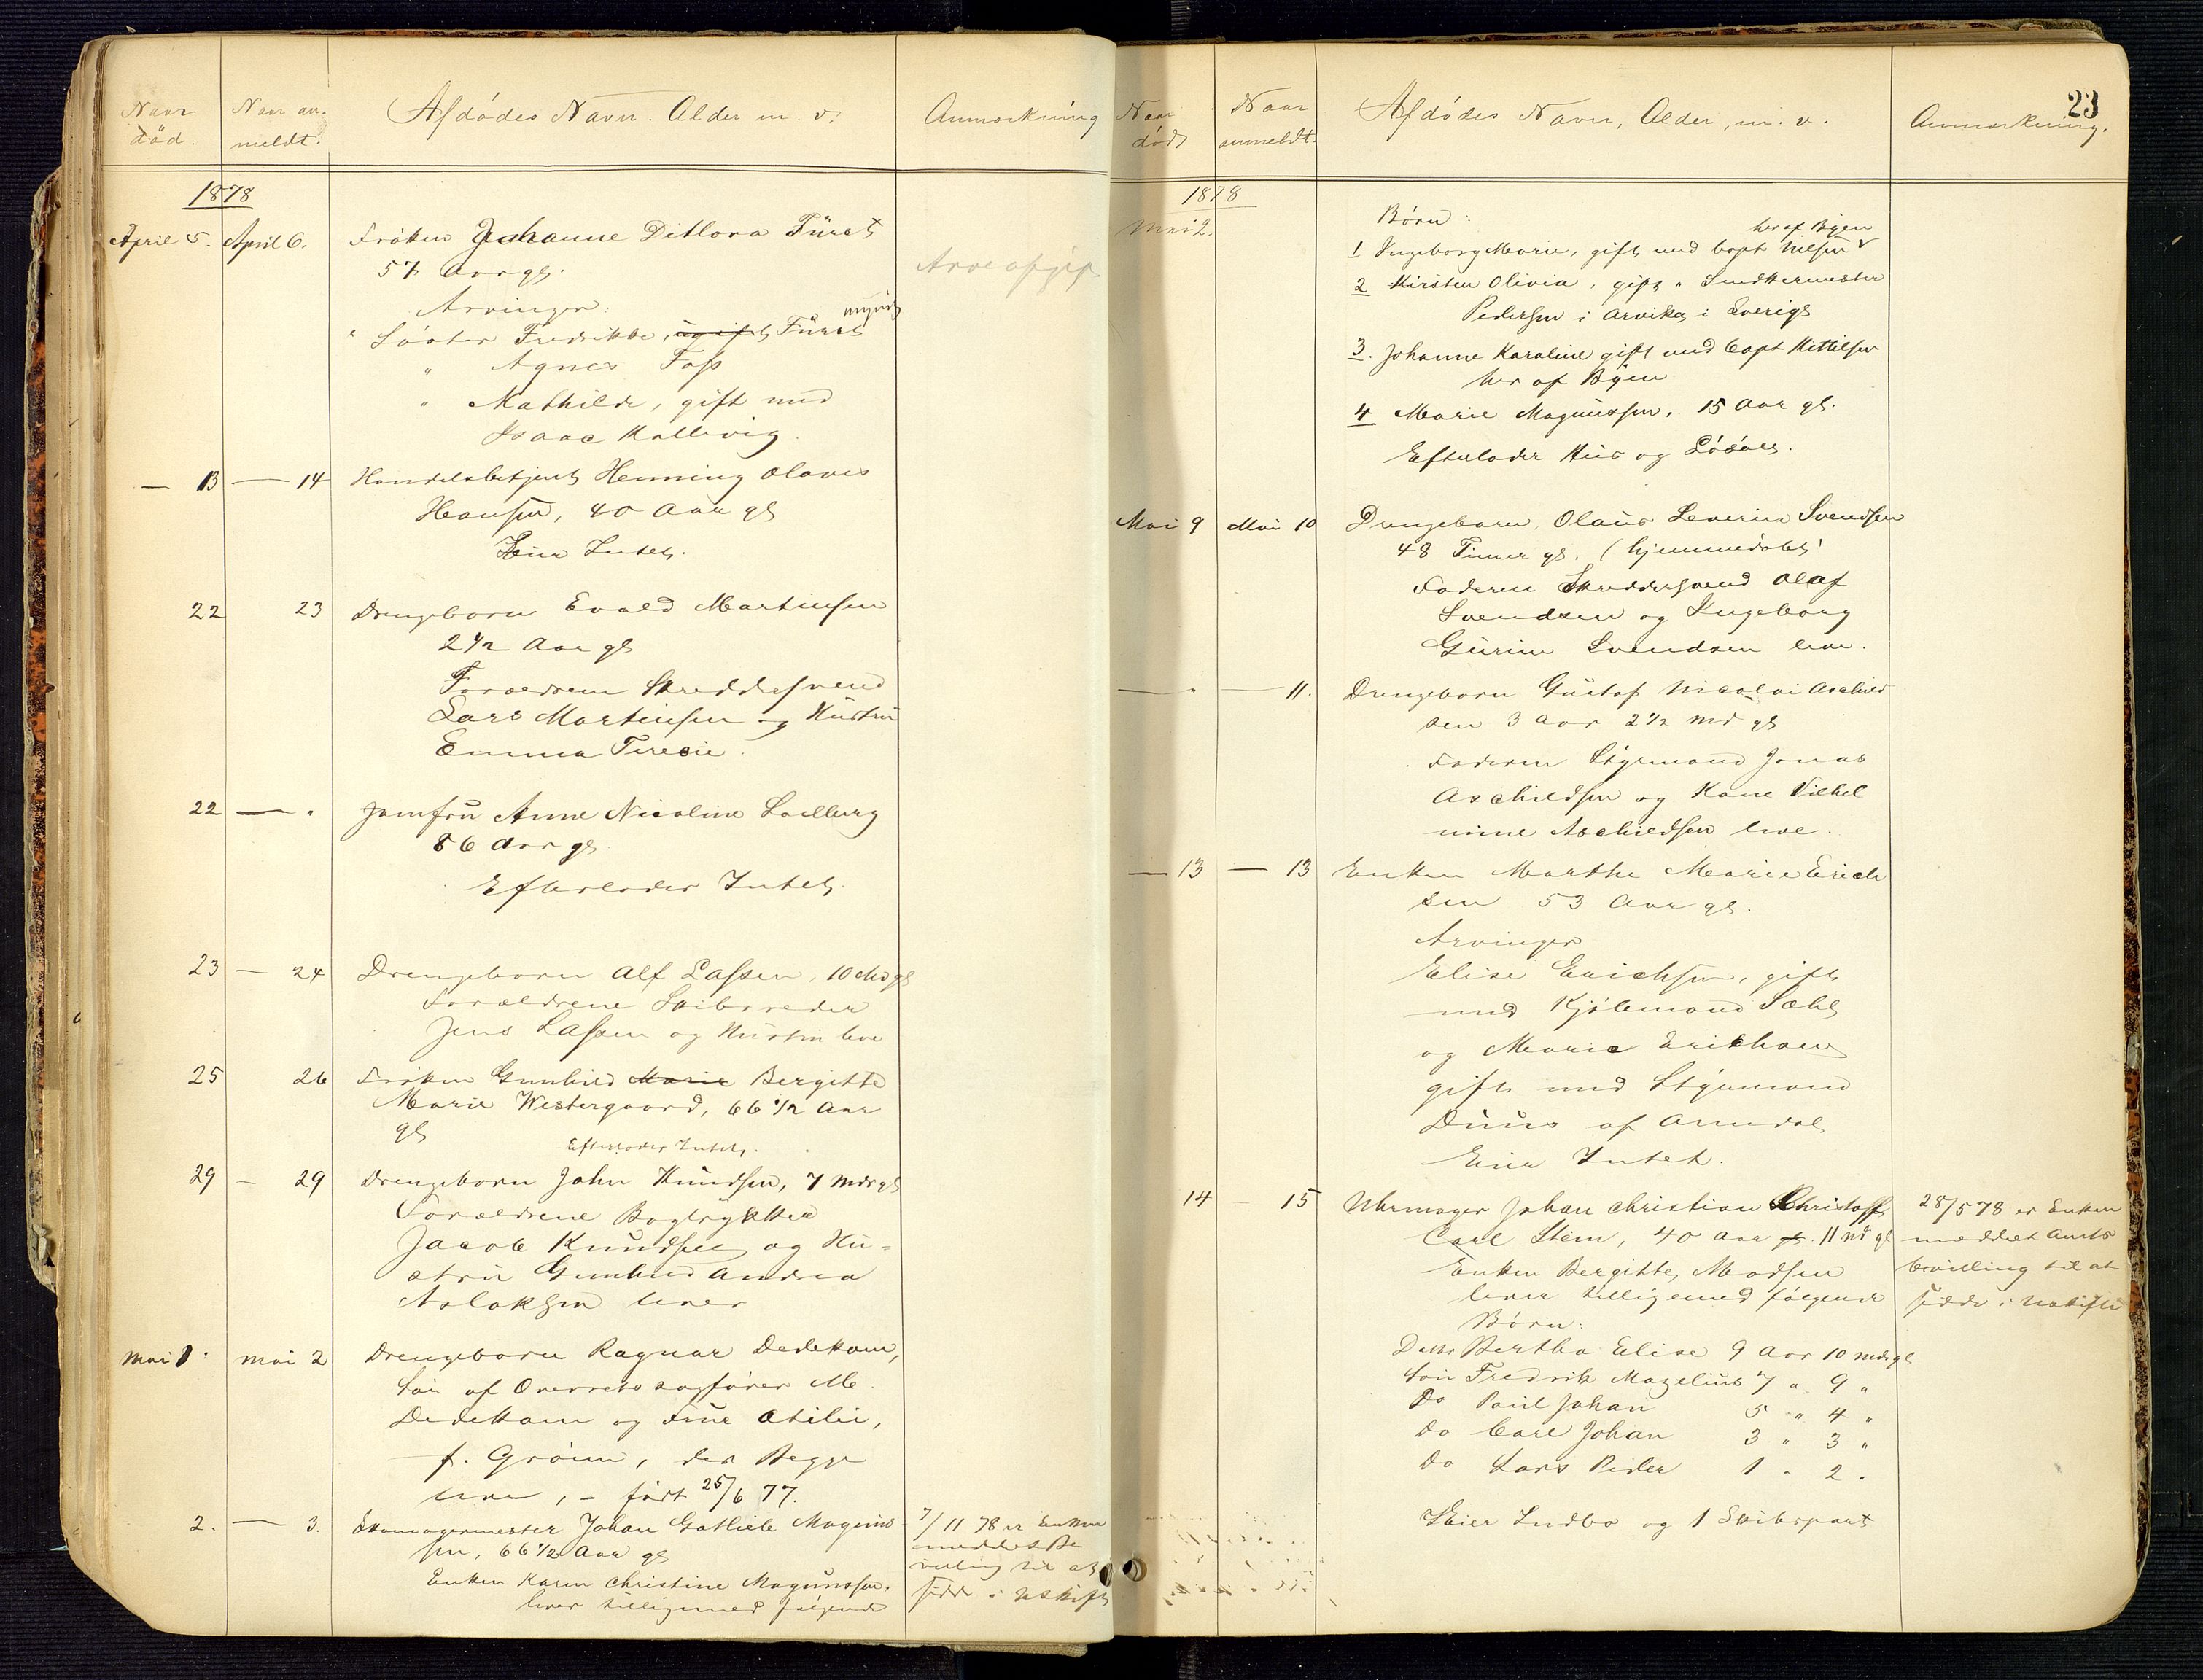 Naar død. Naar an- meldt. Afdødes Navn. Alder m. v. Anmærkning
1878
April 5. April 6. Frøken Johanne Ditlova Fürst
57 Aar gl.
Arveafgift
Arvinger:
" Søster Fredrikke, ugift Fürst myndig
" Agnes Foss
" Mathilde, gift med
Isaac Kallevig.
— 13 — 14 Handelsbetjent Henning Olaves
Hansen, 40 Aar gl
Eier Intet.
22 23 Drengebarn Evald Martinsen
2 1/2 Aar gl
Forældrene Skreddersvend
Lars Martinsen og Hustru
Emma Teresie.
22 — " Jomfru Anne Nicoline Solberg
86 Aar gl.
Efterlader Intet.
23 — 24 Drengebarn Alf Lassen, 10 Md gl
Forældrene Skibsreder
Jens Lassen og Hustru leve
25 26 Frøken Gunhild Marie Bergitte
Marie Westergaard, 66 1/2 Aar
gl
Efterlader Intet.
29 — 29 Drengebarn John Knudsen, 7 Mdr gl
Forældrene Bogtrykker
Jacob Knudsen og Hu-
stru Gunhild Andrea
Aslaksen lever
Mai 1. Mai 2 Drengebarn Ragnar Dedekam,
Søn af Overretssagfører M.
Dedekam og Frue Otilie,
f. Grønn, der Begge
leve, – født 25/6 77.
2. — 3. Skomagermester Johan Gotlieb Magnus-
sen, 66 1/2 Aar gl
Enken Karen Christine Magnussen.
lever tilligemed følgende
7/11 78 er Enken
meddelt Be
villing til at
sidde i Uskift
23
Naar død Naar anmeldt. Afdødes Navn, Alder, m. v. Anmærkning.
1878
Mai 2. Børn:
1 Ingeborg Marie, gift med Capt Nilsen her af Byen
2 Kirsten Olivia, gift " Snedkermester
Pedersen i Arvika i Sverige
3. Johanne Karoline gift med Capt Kittilsen
her af Byen
4 Marie Magnussen, 15 Aar gl.
Efterlader Hus og Løsøre.
Mai 9 Mai 10 Drengebarn, Olaus Severin Svendsen
48 Timer gl. (hjemmedøbt)
Faderen Skreddersvend Olaf
Svendsen og Ingeborg
Gurine Svendsen leve.
— " — 11. Drengebarn Gustaf Nicolai Aschild
sen 3 Aar 2 1/2 Md gl
Faderen Styrmand Jonas
Aschildsen og Kone Vilhel
mine Aschildsen leve.
— 13 — 13 Enken Marthe Marie Erich
sen 53 Aar gl.
Arvinger
Elise Erichsen, gift
med Kjøbmand
og Marie Erichsen
gift med Styrmand
Duus af Arendal
Eier Intet.
14 — 15 Uhrmager Johan Christian Christoff
Carl Stein, 40 Aar gl. 11 Md gl
Enken Bergitte Madsen
lever tilligemed følgende
Børn:
Datter Bertha Elise 9 Aar 10 Mdr gl
Søn Fredrik Mazelius 7 " 9 "
Do Paul Johan 5 " 4 "
Do Carl Johan 3 " 3 "
Do Lars Peder 1 " 2 "
Eier Indbo og 1 Skibspart
28/5 78 er Enken
meddelt Amts
bevilling til at
sidde i Uskifte